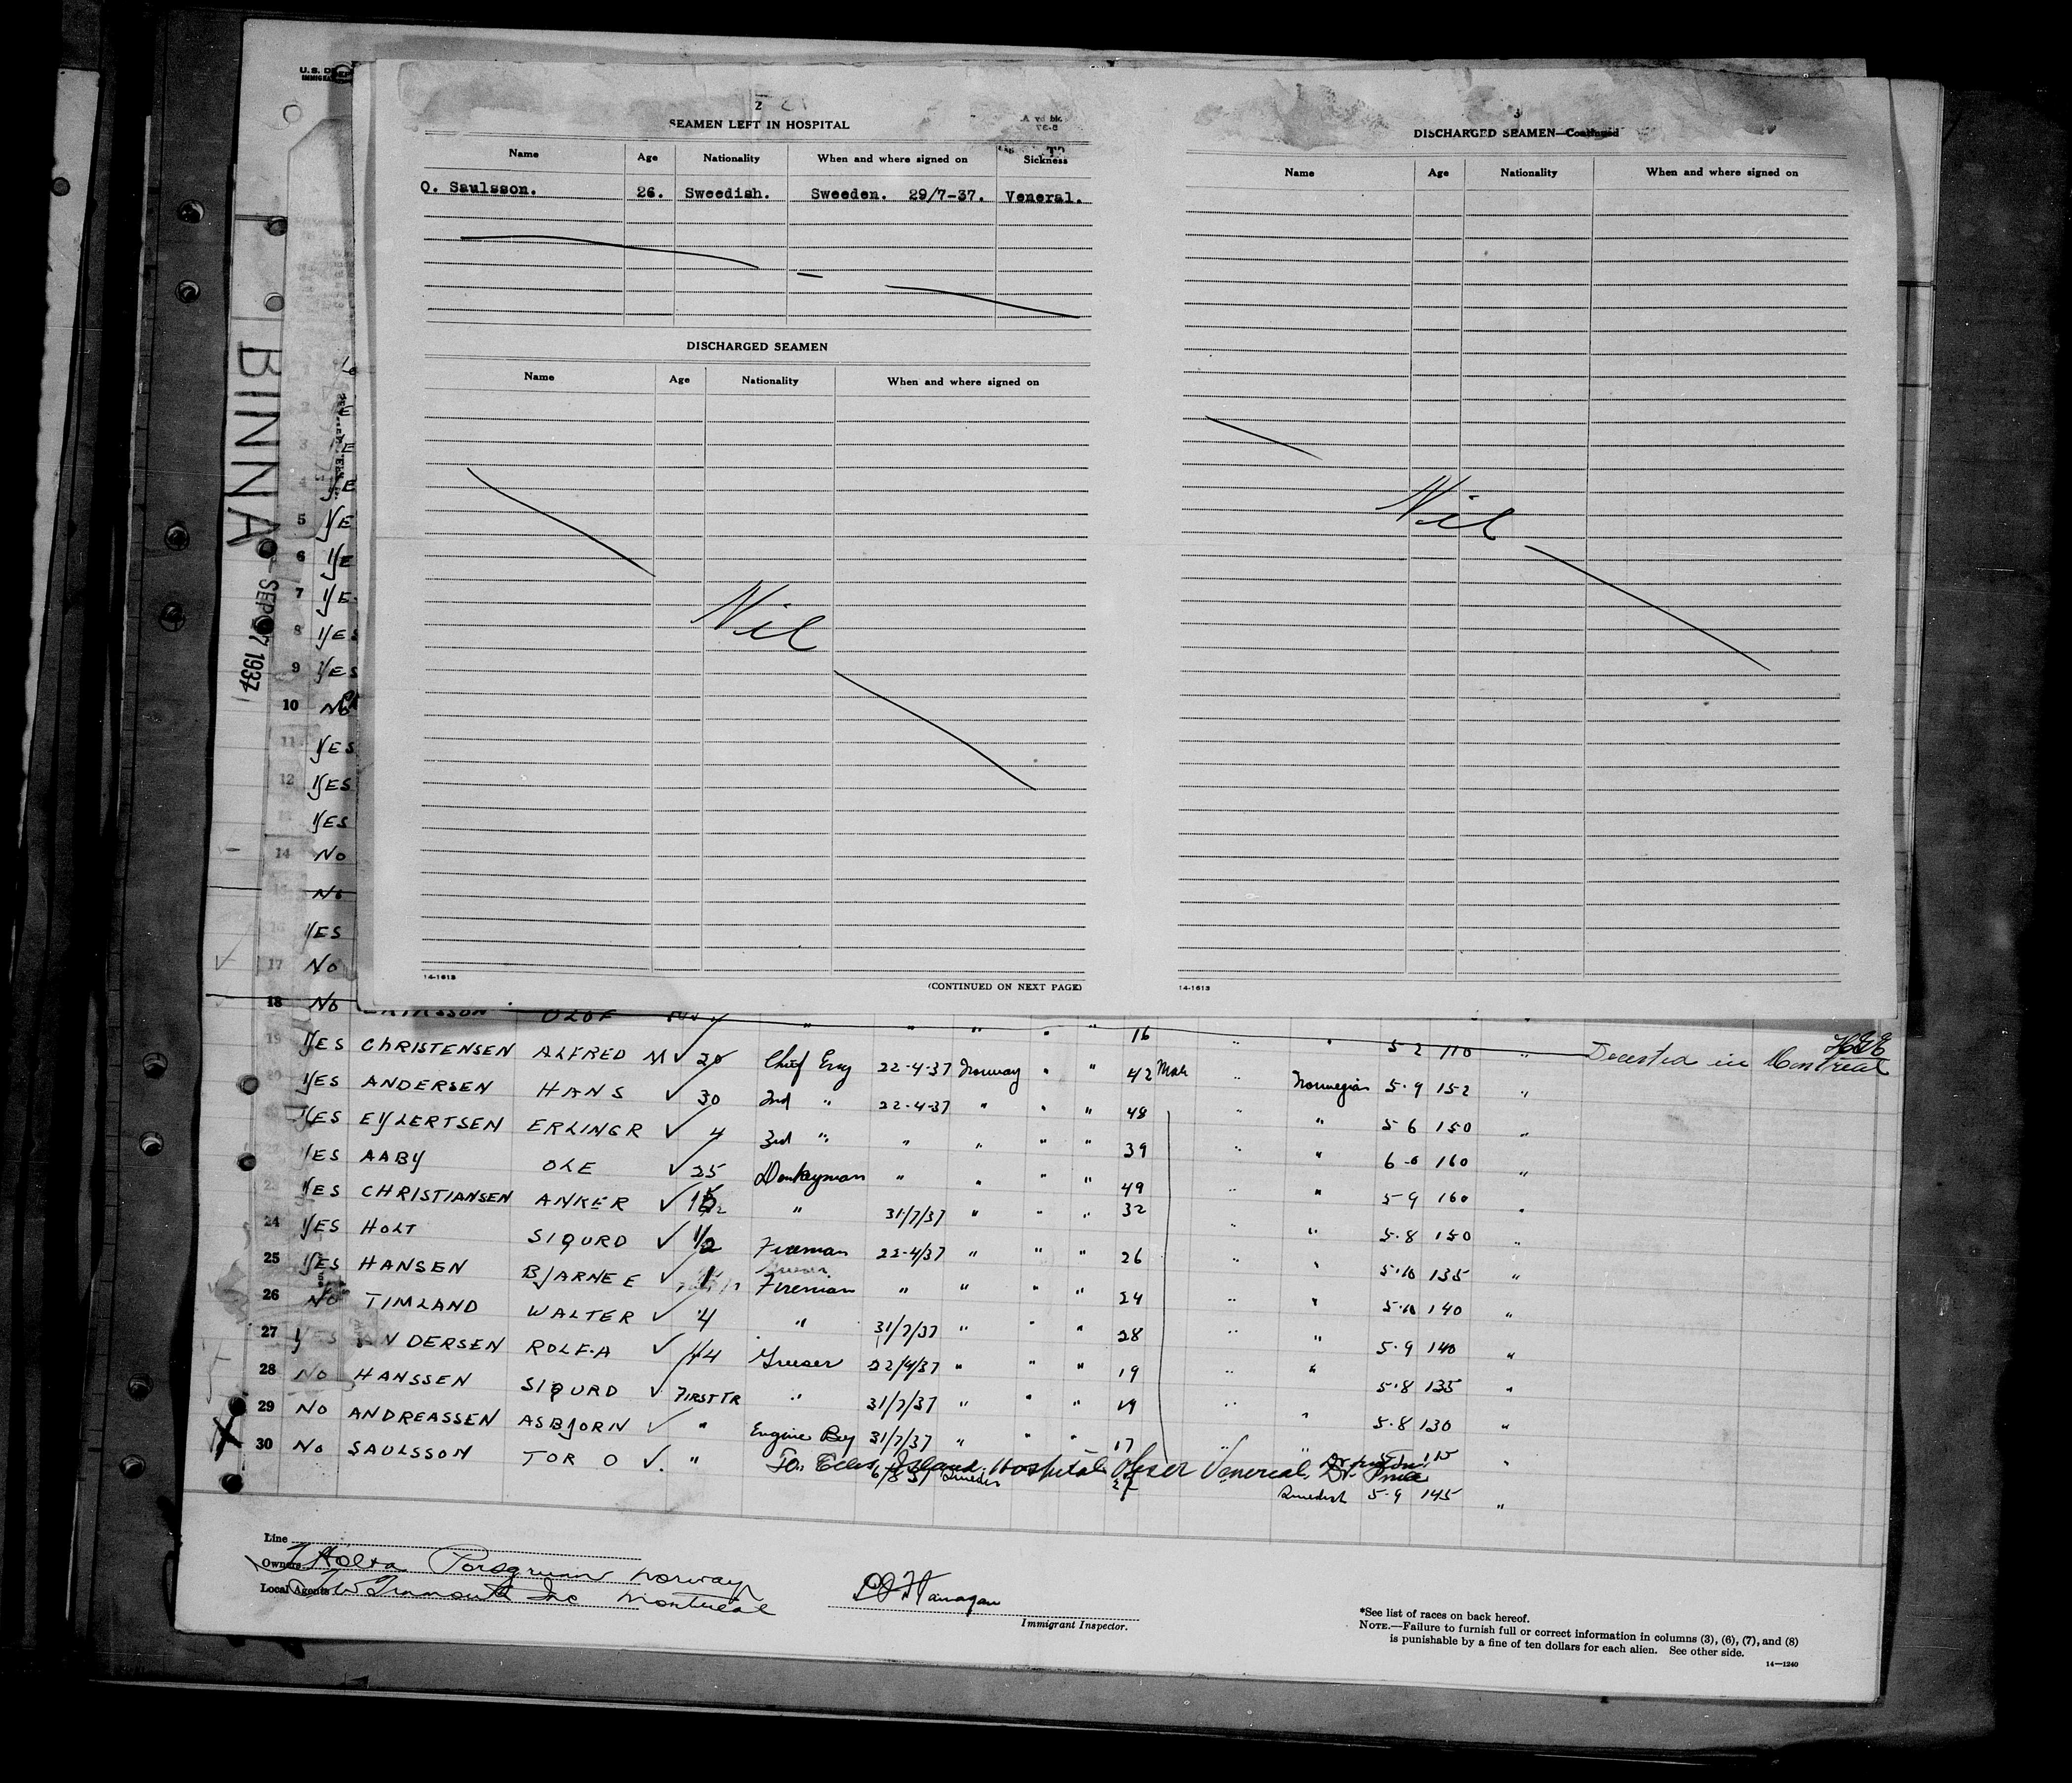 U.S. D
BINNA
SEP 7 1937
2
SEAMEN LEFT IN HOSPITAL
Name Age Nationality When and where signed on Sickness
O. Saulsson. 26. Sweedish. Sweeden. 29/7-37. Veneral.
DISCHARGED SEAMEN
Name Age Nationality When and where signed on
Nil
14-1613
(CONTINUED ON NEXT PAGE)
3
DISCHARGED SEAMEN—Continued
Name Age Nationality When and where signed on
Nil
14-1613
5 YE
6 YE
7 YE
8 YES
9 YES
10 No
11 YES
12 YES
YES
14 No
No
YES
17 No
18 No OLOF " " " " " 16 " " 5 2 110 " Deserted in Montreal
19 YES CHRISTENSEN ALFRED M 20 Chief Eng 22-4-37 Norway " " 42 Male " Norwegian 5-9 152 "
20 YES ANDERSEN HANS 30 2nd " 22-4-37 " " " 48 " " 5 6 150 "
YES EYLERTSEN ERLING R 4 3rd " " " " " 39 " " 6-0 160 "
YES AABY OLE 25 Donkeyman " " " " 49 " " 5-9 160 "
YES CHRISTIANSEN ANKER " 31/7/37 " " " 32 " " 5-8 150 "
24 YES HOLT SIGURD 1/2 Fireman 22-4/37 " " " 26 " " 5-10 135 "
25 YES HANSEN BJARNE E Fireman " " " " 24 " " 5-10 140 "
26 No TIMLAND WALTER 4 " 31/7/37 " " " 28 " " 5-9 140 "
27 YES ANDERSEN ROLF.A Greaser 22/4/37 " " " 19 " " 5-8 135 "
28 No HANSSEN SIGURD FIRST TR " 31/7/37 " " " 19 " " 5-8 130 "
29 No ANDREASSEN ASBJORN " Engine Boy 31/7/37 " " " 17 " " 115 "
30 No SAULSSON TOR O " To Ellis Island Hospital Obser Venereal, Dr.
Swedish 5-9 145 "
Line
Owners Holta Porsgrunn Norway
Local Agents Inc Montreal
Flanagan
Immigrant Inspector.
*See list of races on back hereof.
NOTE.—Failure to furnish full or correct information in columns (3), (6), (7), and (8)
is punishable by a fine of ten dollars for each alien. See other side.
14—1240